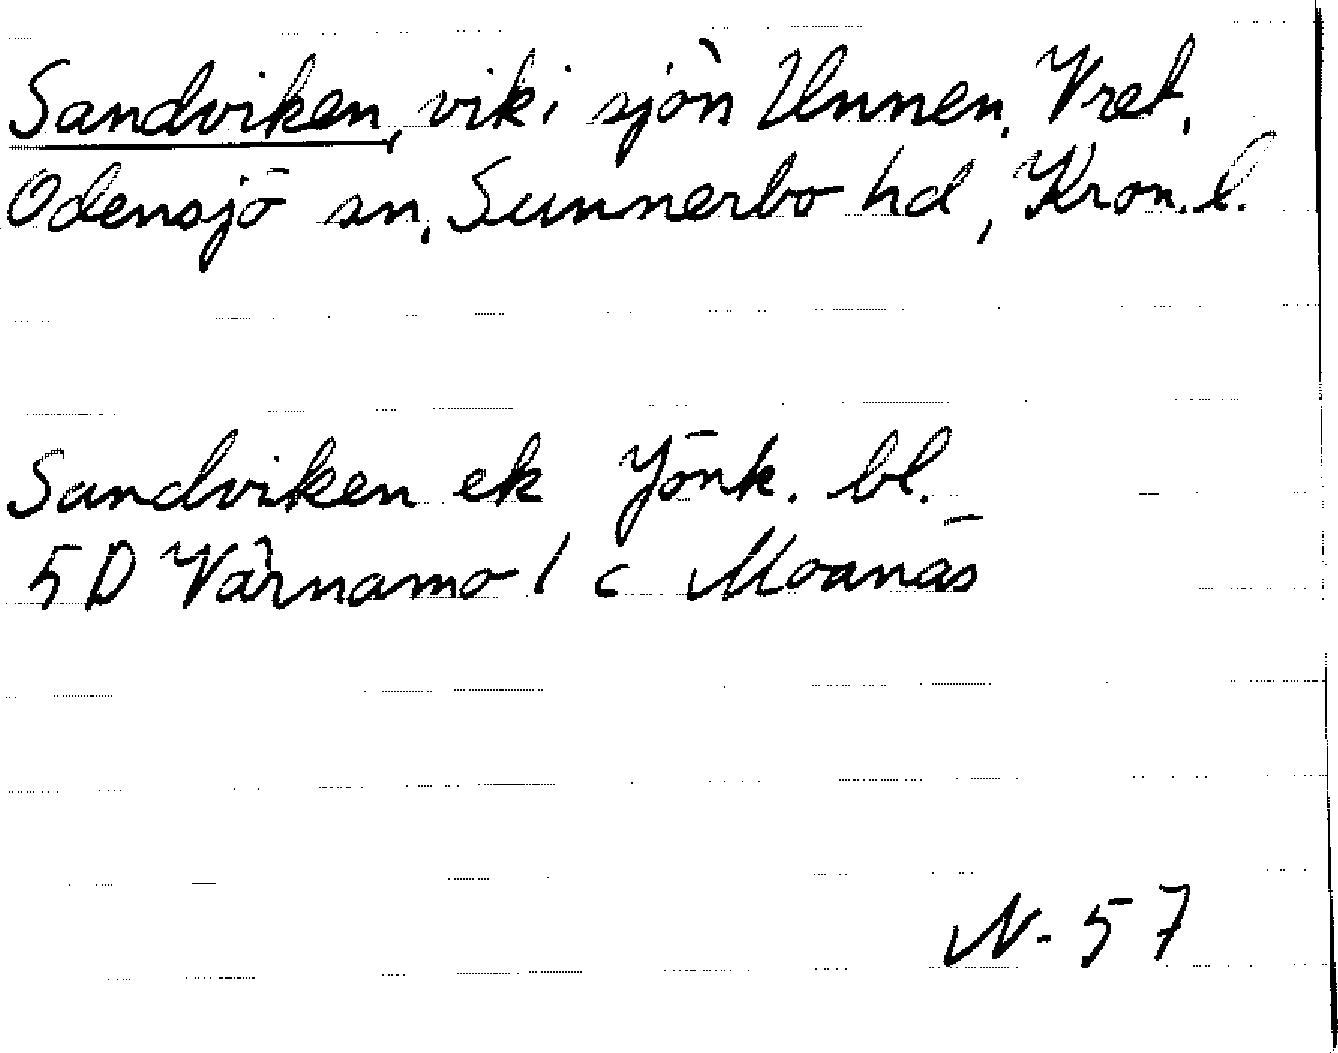 Sandviken, vik i sjön Unnen, Vret,
Odensjö sn, Sunnerbo hd, Kron. l.
Sandviken ek Jönk. bl.
5D Värnamo 1 c Moanäs
N-57